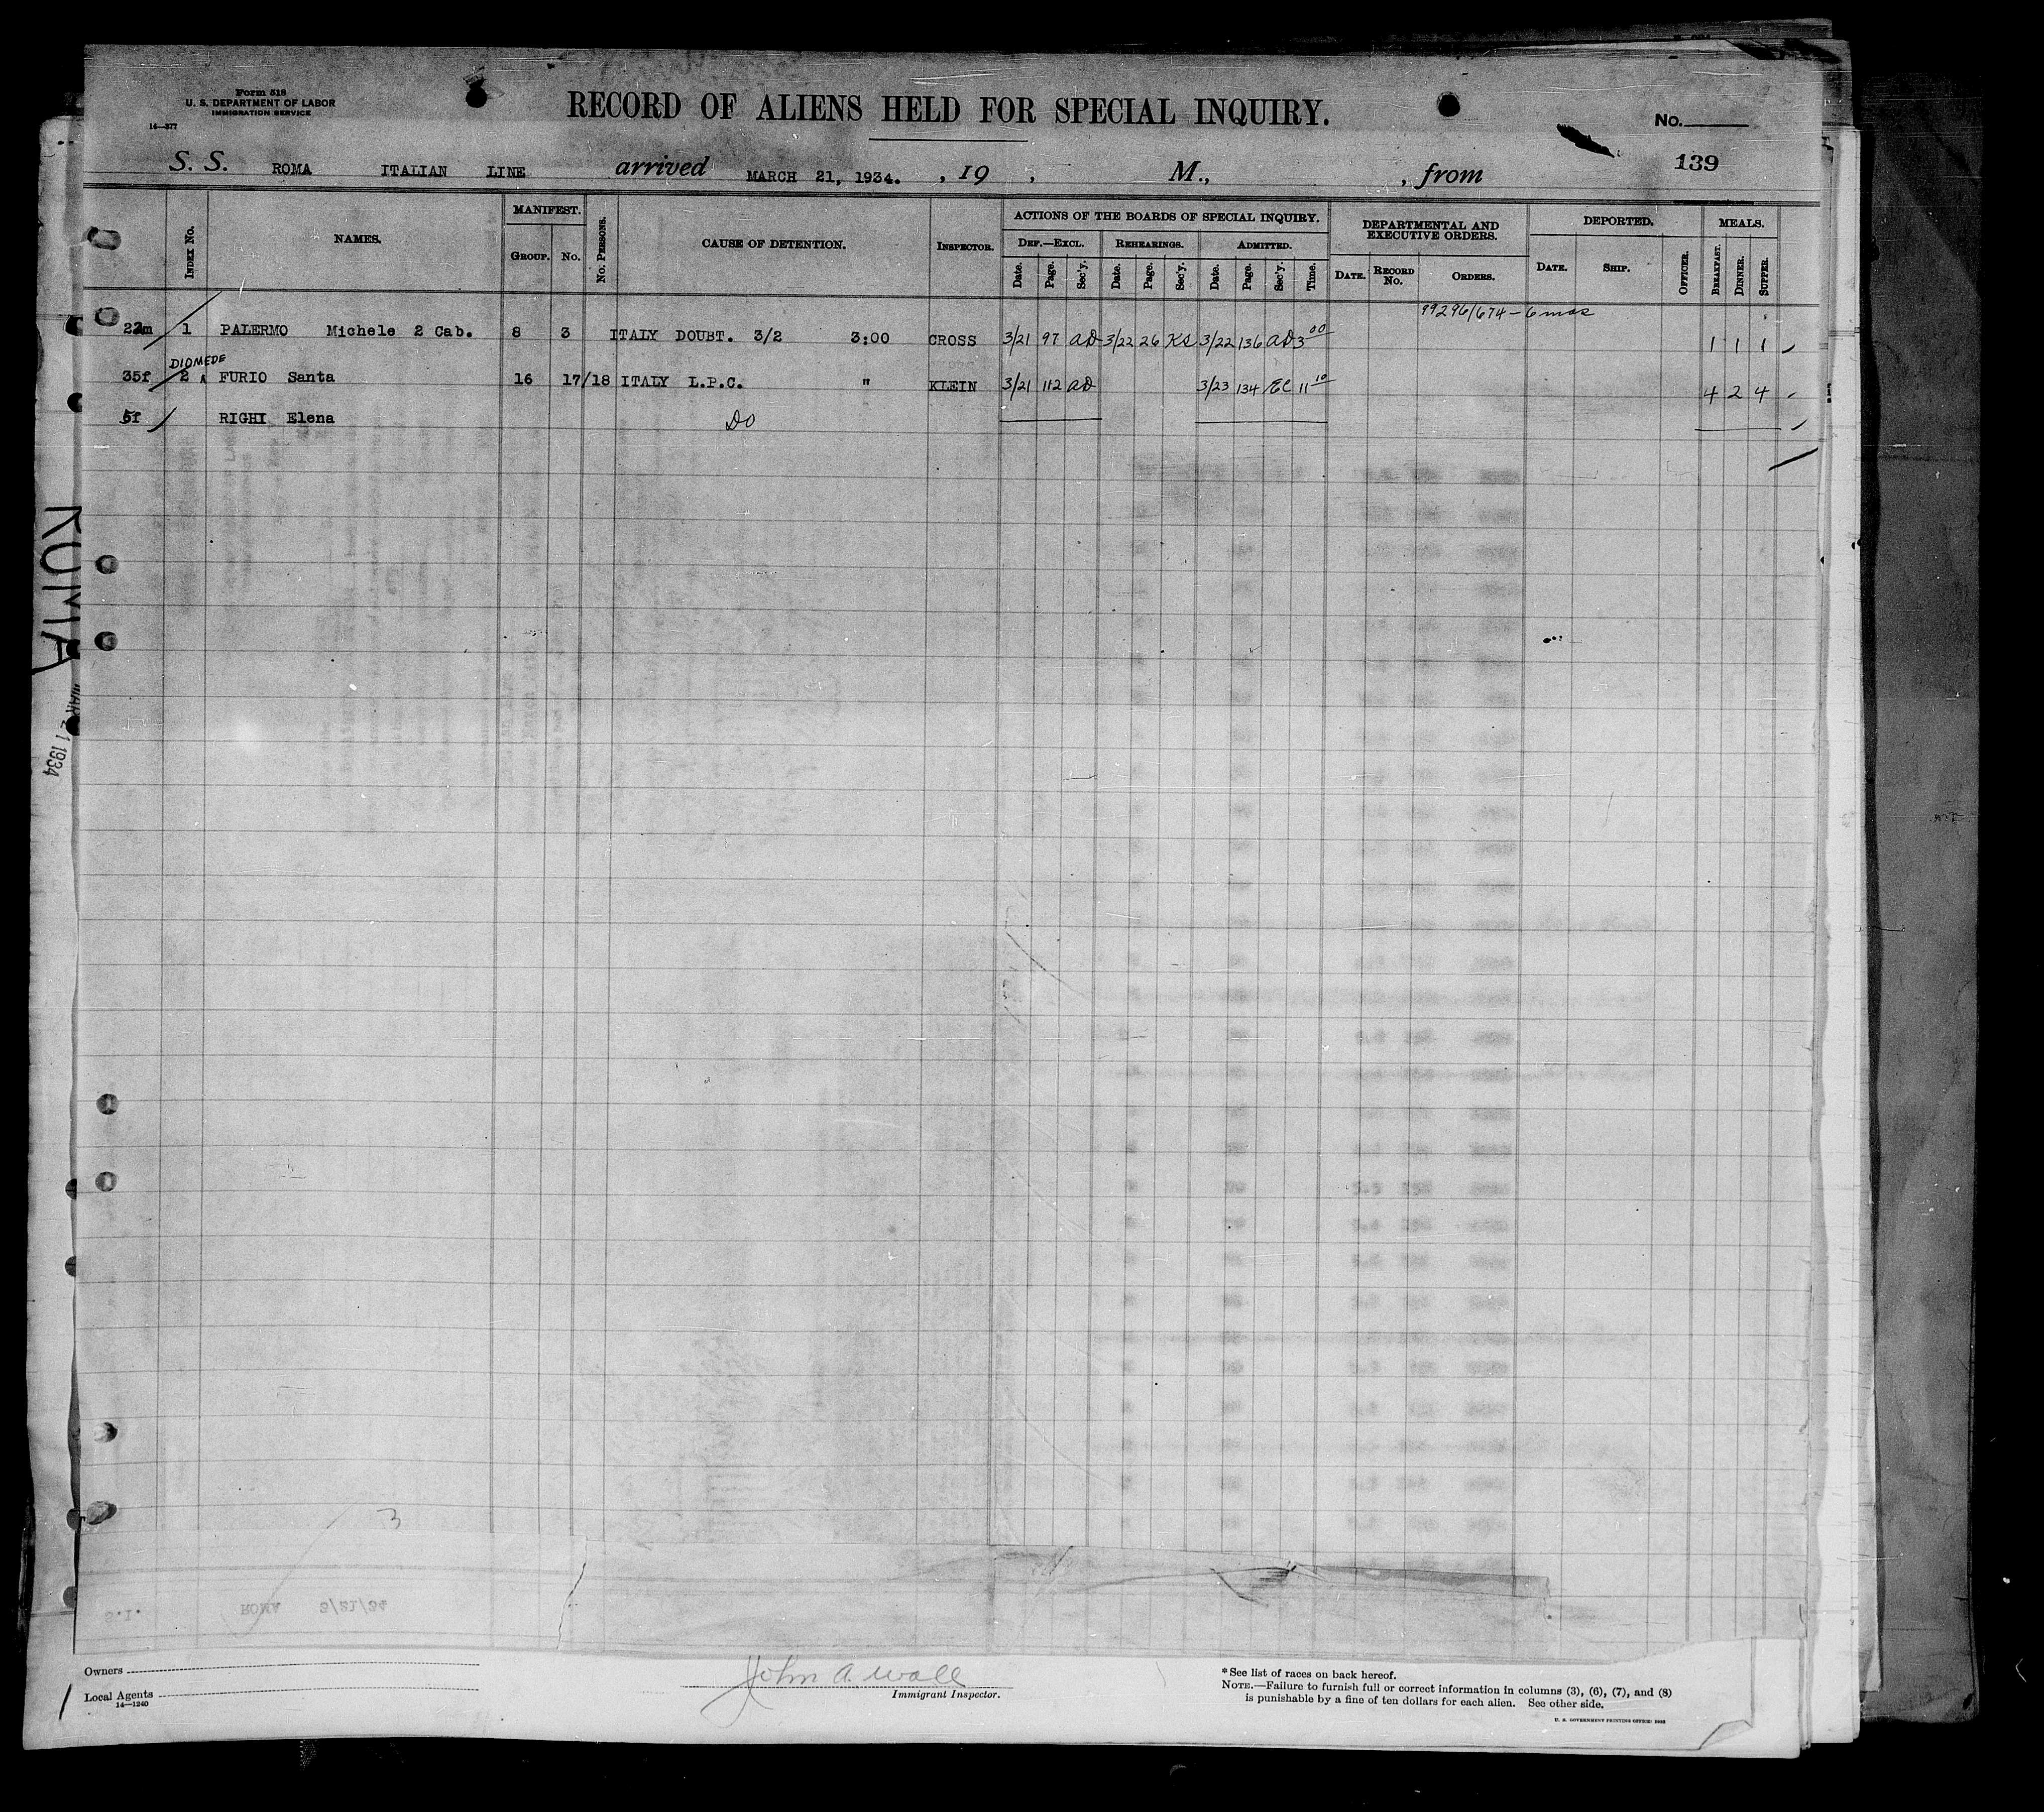 Form 518
U. S. DEPARTMENT OF LABOR
IMMIGRATION SERVICE
14—377
RECORD OF ALIENS HELD FOR SPECIAL INQUIRY.
No.
139
S. S. ROMA ITALIAN LINE arrived MARCH 21, 1934. , 19 , M., , from
INDEX No. NAMES. MANIFEST. GROUP. No. No. PERSONS. CAUSE OF DETENTION. INSPECTOR. ACTIONS OF THE BOARDS OF SPECIAL INQUIRY. DEF.—EXCL. Date. Page. Sec'y. REHEARINGS. Date. Page. Sec'y. ADMITTED. Date. Page. Sec'y. Time. DEPARTMENTAL AND EXECUTIVE ORDERS. DATE. RECORD No. ORDERS. DEPORTED. DATE. SHIP. OFFICER. MEALS. BREAKFAST. DINNER. SUPPER.
99296/674 - 6 mos
1 PALERMO Michele 2 Cab. 8 3 ITALY DOUBT. 3/2 3:00 CROSS 3/21 97 AD 3/22 26 KS 3/22 136 AD 3 00 1 1 1
DIOMEDE
35f 2 FURIO Santa 16 17/18 ITALY L.P.C. " KLEIN 3/21 112 AD 3/23 134 EC 11 10 4 2 4
5f RIGHI Elena DO
ROMA
MAR 21 1934
3
S.I. ROMA 3/21/34
Owners
Local Agents
14—1240
John A. Wall
Immigrant Inspector.
* See list of races on back hereof.
NOTE.—Failure to furnish full or correct information in columns (3), (6), (7), and (8)
is punishable by a fine of ten dollars for each alien. See other side.